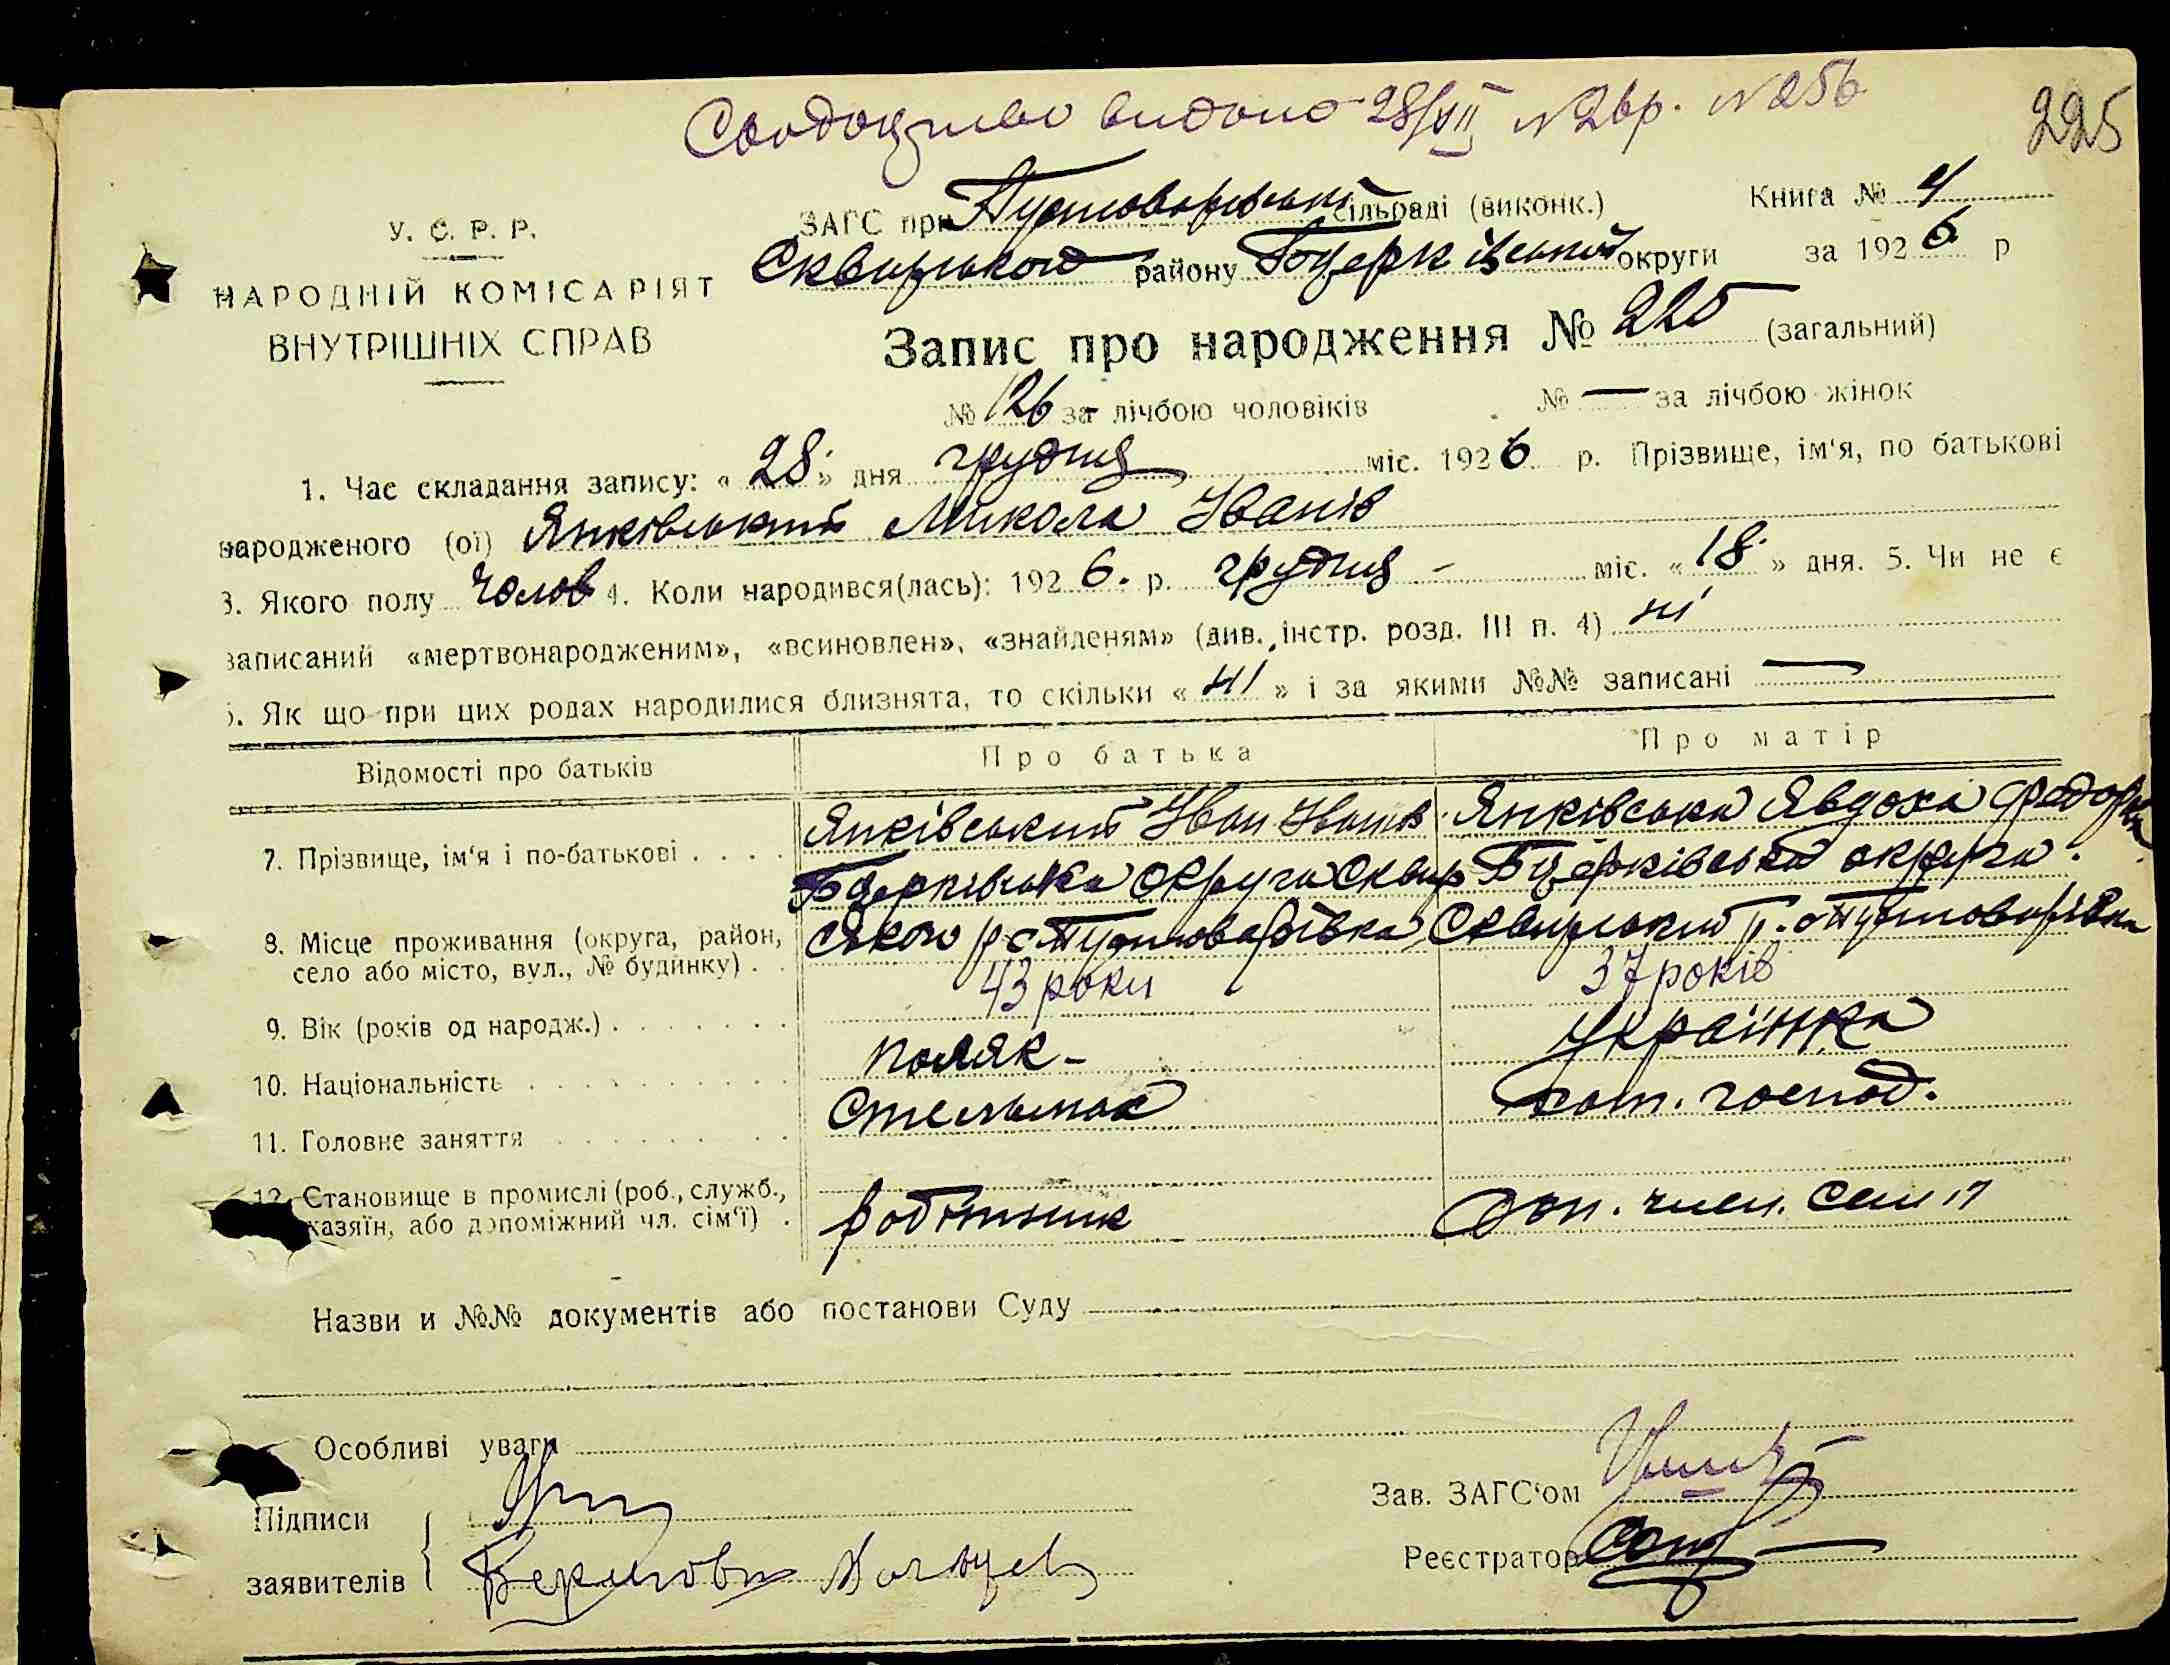 Свідоцтво видано 28/XII 26р. №256
225
У. С. Р. Р.
НАРОДНІЙ КОМІСАРІЯТ
ВНУТРІШНІХ СПРАВ
ЗАГС при Пустоварівській сільраді (виконк.) Книга № 4
Сквирського району Б Церківської округи за 1926 р
Запис про народження № 225 (загальний)
№ 126 за лічбою чоловіків № — за лічбою жінок
1. Час складання запису: « 28 » дня грудня міс. 1926 р. Прізвище, ім'я, по батькові
народженого (ої) Янківський Микола Іванів
3. Якого полу Чолов 4. Коли народився(лась): 1926. р. грудня - міс. « 18 » дня. 5. Чи не є
записаний «мертвонародженим», «всиновлен», «знайденям» (див. інстр. розд. III п. 4) ні
6. Як що при цих родах народилися близнята, то скільки « ні » і за якими №№ записані —
Відомості про батьків Про батька Про матір
7. Прізвище, ім'я і по-батькові . . . . Янківський Іван Іванів Янківська Явдоха Федорівн
Бцерківська округа Сквир Бцерківська округа.
8. Місце проживання (округа, район, ського р с Пустоварівка Сквирський р. с Пустоварівка
село або місто, вул., № будинку) . .
9. Вік (років од народж.) . . . . . . . 43 роки 37 років
10. Національність . . . . . . . . . . поляк - Українка
11. Головне заняття . . . . . . . . . Стельмах хат. господ.
12. Становище в промислі (роб., служб.,
хазяїн, або допоміжний чл. сім'ї) . робітник Доп. член. сім'ї
Назви и №№ документів або постанови Суду
Особливі уваги
Підписи
Зав. ЗАГС'ом
заявителів
Реєстратор